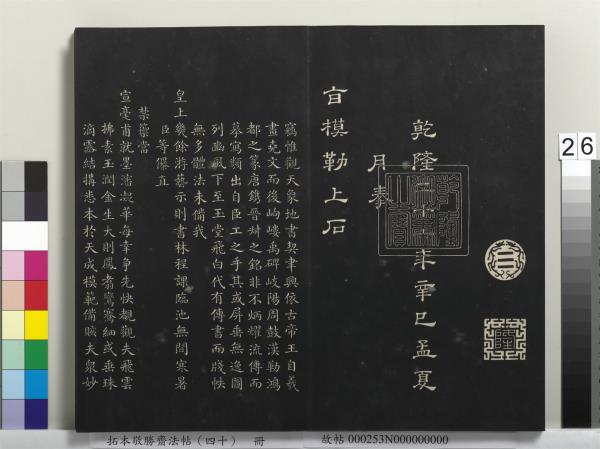 乾隆二十六年辛巳孟夏
月奉
旨模勒上石
竊惟觀天象地書契聿興依古帝王自羲
畫堯文而後岣嶁禹碑岐陽周鼓漢勒鴻
都之篆唐鐫晉祠之銘非不炳耀流傳而
摹寫類出自臣工之手其或屏垂無逸圖
列豳風下至玉堂飛白代有傳書而牋帙
無多體法未備我
皇上幾餘游藝示則書林程課臨池無間寒暑
臣等傑直
禁籞當
宣毫甫就墨瀋凝華每幸爭先快覩觀夫飛雲
拂素玉潤金生大則鳳翥鸞騫細或垂珠
滴露結構悉本於天成模範備賅夫眾妙
26
拓本敬勝齋法帖（四十） 冊
故帖 000253N000000000